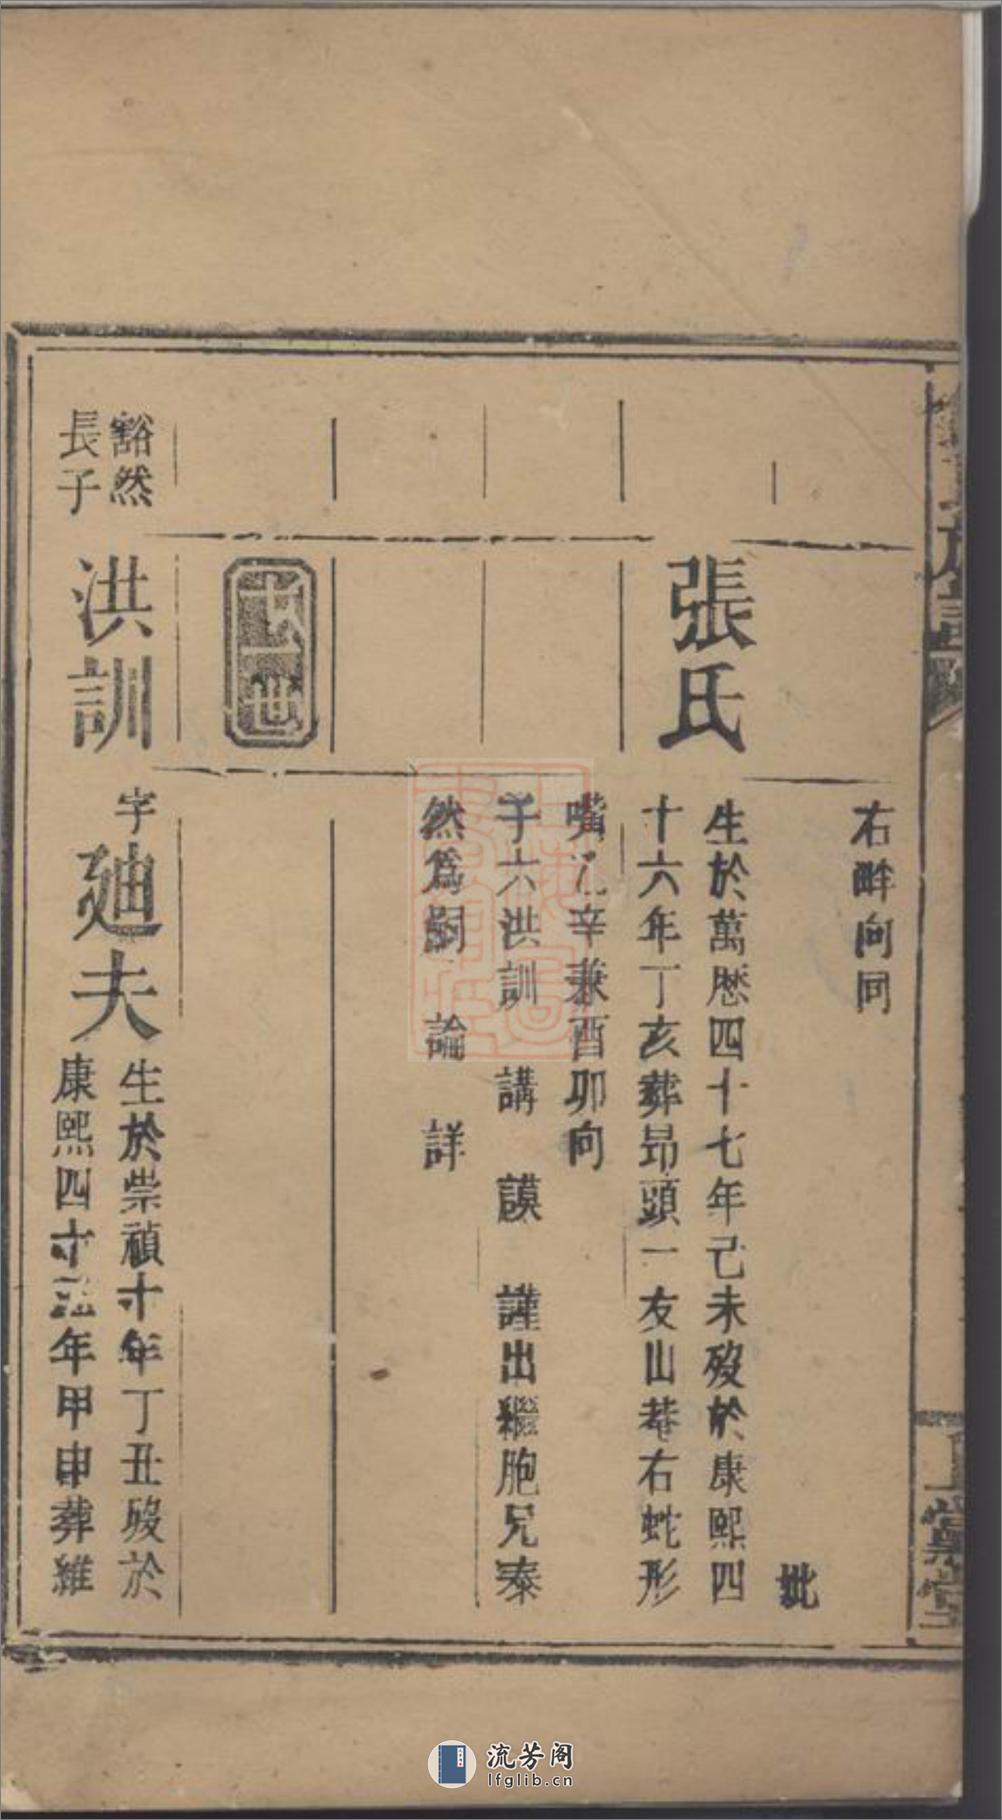 右畔向同
妣
張氏
生於萬厯四十七年己未歿於康熙四
十六年丁亥葬昂頭一友山菴右蛇形
嘴乙辛兼酉卯向
子六洪訓 講 謨 謹出繼胞兄泰
然爲嗣 論 詳
十一世
豁然
長子
洪訓
字廸夫
生於崇禎十年丁丑歿於
康熙四十三年甲申葬維
流芳阁
lfglib.cn